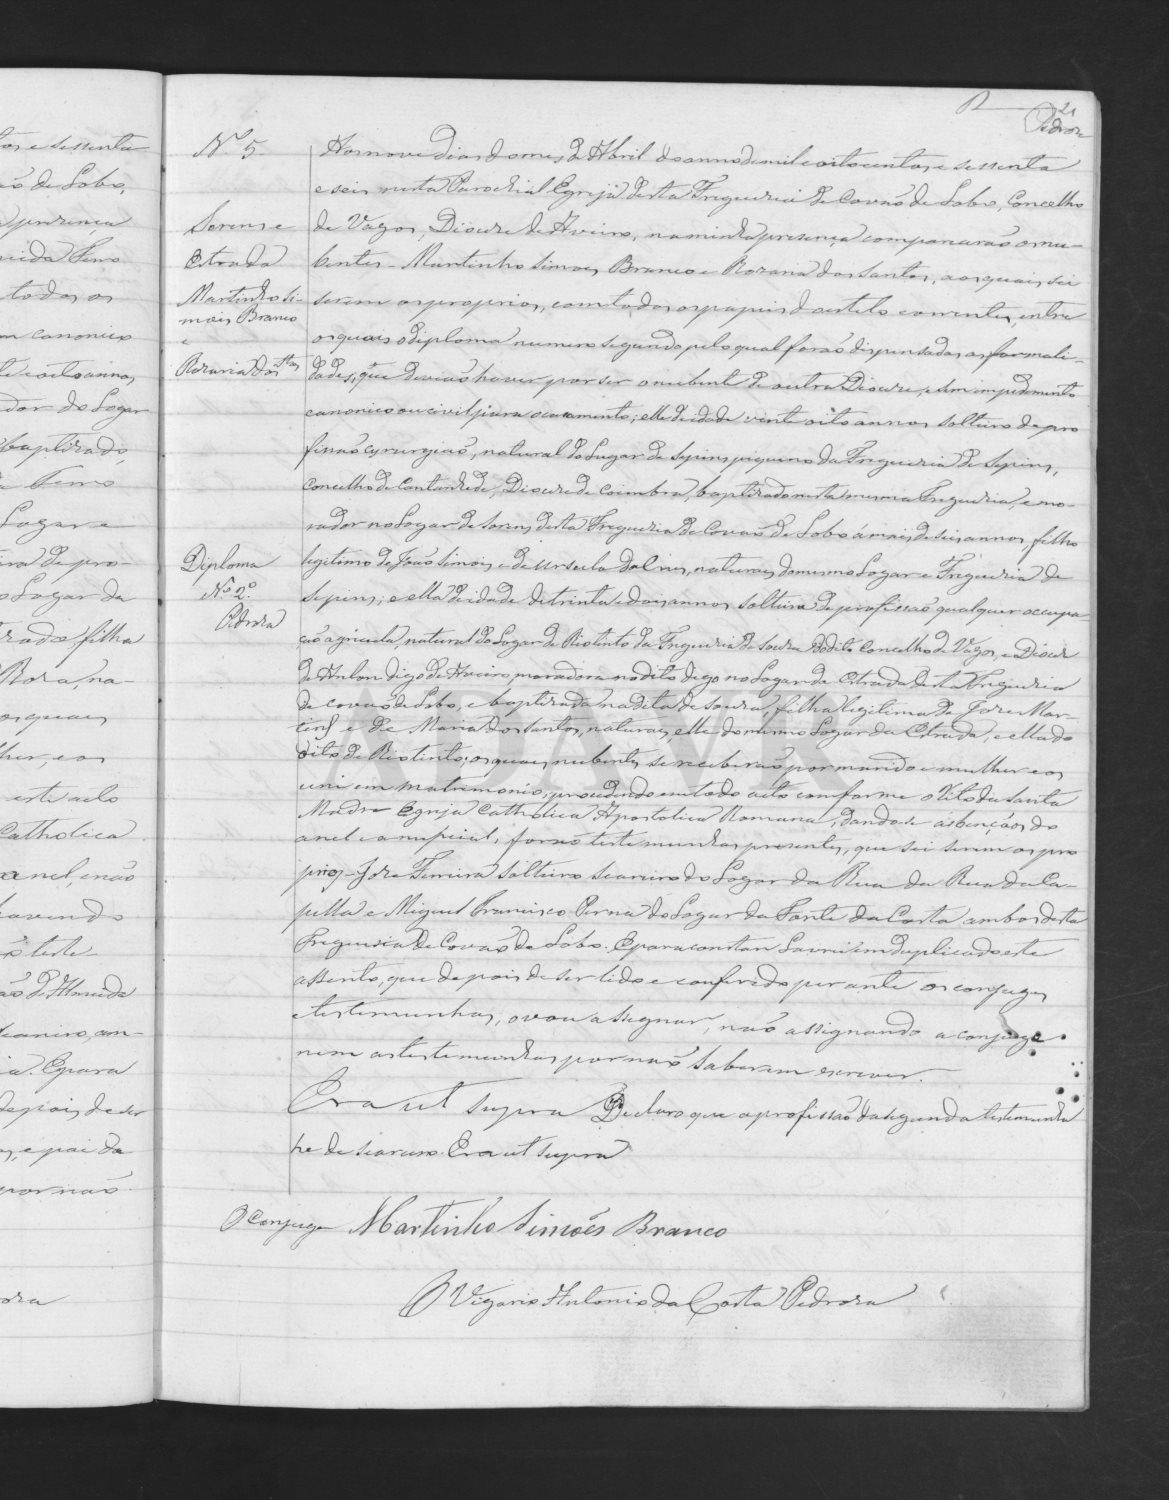 21
Pedroza
Nº 5.
Sorens e
Estrada
Martinho Si-
mois Branco
e
Rozaria dos Stos
Diploma
Nº 2º
Pedroza
Aos nove dias do mes de Abril do anno de mil e oito centos e sessenta
e seis nesta Parochial Egreja desta Freguezia de Covão de Lobo, Concelho
de Vagos, Diocese de Aveiro, na minha presença compareceraõ os nu-
bentes - Martinho Simoes Branco e Rozaria dos Santos, aos quais sei
serem os proprios, com todos os papeis do estilo correntes, entre
os quais o diploma numero segundo pelo qual foraõ dispensadas as formali-
dades, que deviaõ haver por ser o nubente de outra Diocese, e sem impedimento
canonico ou civil para o casamento; elle de idade vinte oito annos solteiro de pro
fissaõ cyrurgiaõ, natural do Lugar de Sepins piqueno da Freguezia de Sepins,
Concelho de Cantanhede, Diocese de Coimbra, baptizado nesta mesma Freguezia, e mo-
rador no Logar de Sorens desta Freguezia de Covaõ de Lobo á mais de seis annos, filho
legitimo de Joaõ Simois e de Ursula da Cruz, naturais do mesmo Logar e Freguezia de
Sepins; e ella de idade de trinta e dois annos solteira de profissaõ qualquer occupa-
çaõ agricula, natural do Logar de Riotinto da Freguezia de Souza do dito Concelho de Vagos, e Diocese
de Aulon digo de Aveiro moradora no dito digo no Logar da Estrada desta Freguezia
de covaõ de Lobo, e baptizada na dita de Souza, filha legitima de Joze Mar-
tins e de Maria dos Santos, naturais, elle do mesmo Logar da Estrada, e ella do
dito de Riotinto; os quais nubentes se receberaõ por marido e mulher e os
uni em matrimonio, procedendo em todo acto conforme o Rito da Santa
Madre Egreja Catholica Apostolica Romana, dando-se as bençaõs do
anel e a nupcial, foraõ testemunhas presentes, que sei serem os pro
prios - Joze Ferreira solteiro seareiro do Logar da Rua da Rua da Ca-
pella e Miguel Francisco Perna do Logar da Fonte da Costa ambos desta
Freguesia de Covaõ de Lobo. E para constar Lavrei em duplicado este
assento, que depois de ser lido e conferido perante os conjuges
e testemunhas, o vou assignar, naõ assignando a conjuge
nem as testemunhas por naõ saberem escrever.
Era ut supra Declaro que a profissaõ da segunda testemunha
he de seareiro. Era ut supra
O Conjuge Martinho Simoês Branco
O Vigario Antonio da Costa Pedroza